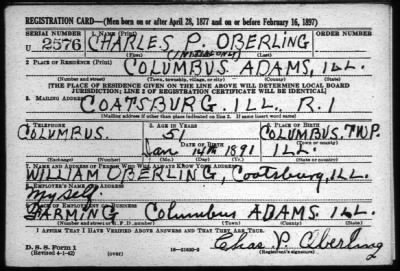 REGISTRATION CARD—(Men born on or after April 28, 1877 and on or before February 16, 1897)
SERIAL NUMBER 1. NAME (Print) ORDER NUMBER
U 2576 CHARLES P. OBERLING
(INITIAL ONLY)
(First) (Middle) (Last)
2. PLACE OF RESIDENCE (Print)
COLUMBUS ADAMS, ILL.
(Number and street) (Town, township, village, or city) (County) (State)
[THE PLACE OF RESIDENCE GIVEN ON THE LINE ABOVE WILL DETERMINE LOCAL BOARD
JURISDICTION; LINE 2 OF REGISTRATION CERTIFICATE WILL BE IDENTICAL]
3. MAILING ADDRESS
COATSBURG. ILL., R.1
(Mailing address if other than place indicated on line 2. If same insert word same)
4. TELEPHONE 5. AGE IN YEARS 6. PLACE OF BIRTH
COLUMBUS. 51 COLUMBUS. TWP.
DATE OF BIRTH (Town or county)
Jan 14th 1891 ILL.
(Exchange) (Number) (Mo.) (Day) (Yr.) (State or country)
7. NAME AND ADDRESS OF PERSON WHO WILL ALWAYS KNOW YOUR ADDRESS
WILLIAM OBERLING, Coatsburg, ILL.
8. EMPLOYER'S NAME AND ADDRESS
My Self
9. PLACE OF EMPLOYMENT OR BUSINESS
FARMING Columbus ADAMS. ILL.
(Number and street or R. F. D. number) (Town) (County) (State)
I AFFIRM THAT I HAVE VERIFIED ABOVE ANSWERS AND THAT THEY ARE TRUE.
D. S. S. Form 1
(Revised 4-1-42) (over) 16-21630-2 Chas. P. Oberling
(Registrant's signature)